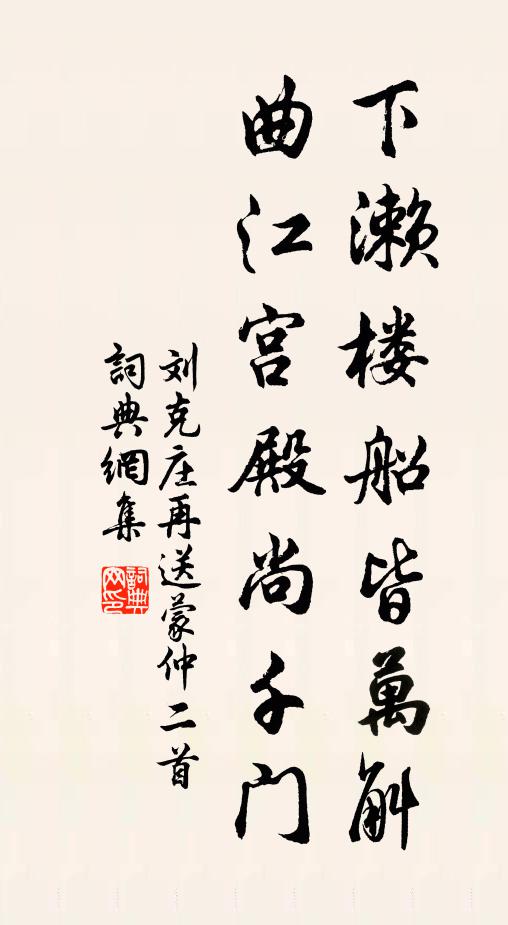 下濑楼船皆萬斛
曲江宫殿尚千门
刘克庄再送蒙仲二首
詞典網集
詞典網印